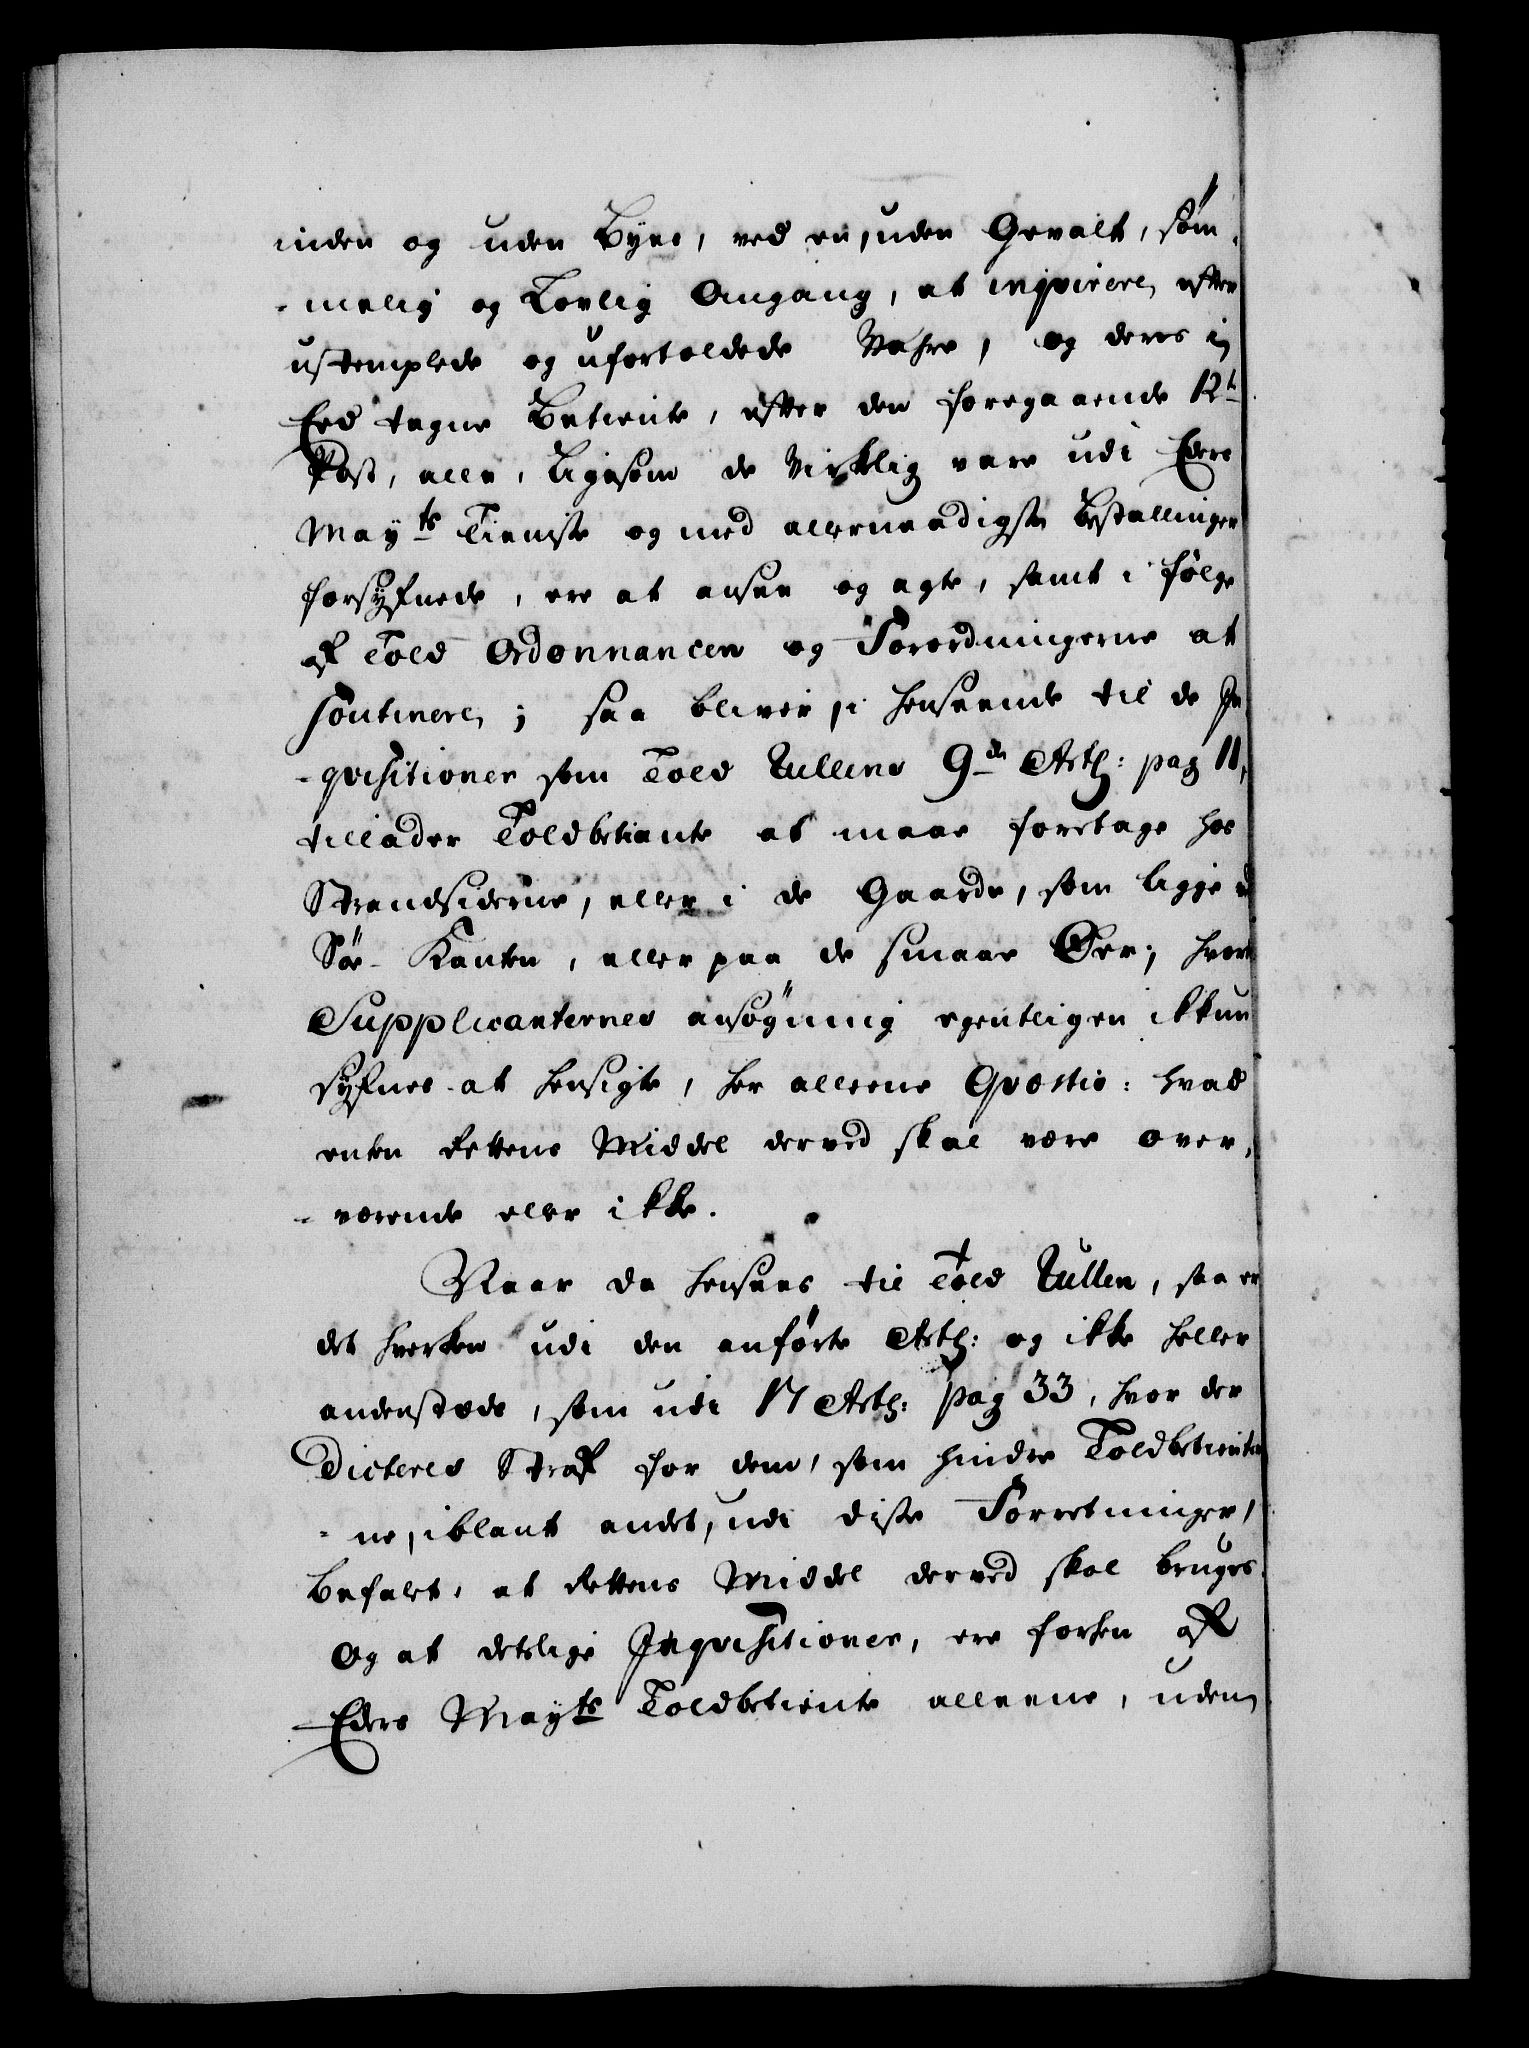 inden og uden Byne, ved en, uden Gevalt, søm-
-melig og Lovlig Omgang, at inqvirere, efter
ustemplede og ufortoldede Vahre, og deres i
Eed tagne Betiente, efter den foregaaende 12te
Post, alle, ligesom de virkelig vare udi Eders
Mayts Tieniste og med allernaadigste Bestallinger
forsyfnede, ere at ansee og agte, samt i følge
af Told Ordonnancen og Forordningerne at
soutinere; saa bliver, i henseende til de In
-qvisitioner som Told Rullens 9de Artl: pag 11,
tillader Toldbetiente at maae foretage hos
Strandsiderne, eller i de Gaarde, som ligge v
Søe-Kanten, eller paa de smaae Øer; hvor
Supplicanternes ansøgning egentligen ikkun
syfnes at hensigte, her alleene Qvæstio: hvad
enten Rettens Middel derved skal være over,
-værende eller ikke.
Naar da henseес til Told Rullen, saa er
det hverken udi den anførte Artl: og ikke heller
andenstæds, som udi 17 Artl: pag 33, hvor der
Dicteres Straf for dem, som hindre Toldbetiente
-ne, iblant andet, udi disse Forretninger,
befalet, at Rettens Middel derved skal bruges.
Og at deslige Inqvisitioner, ere forhen af
Eders Mayts Toldbetiente alleene, uden